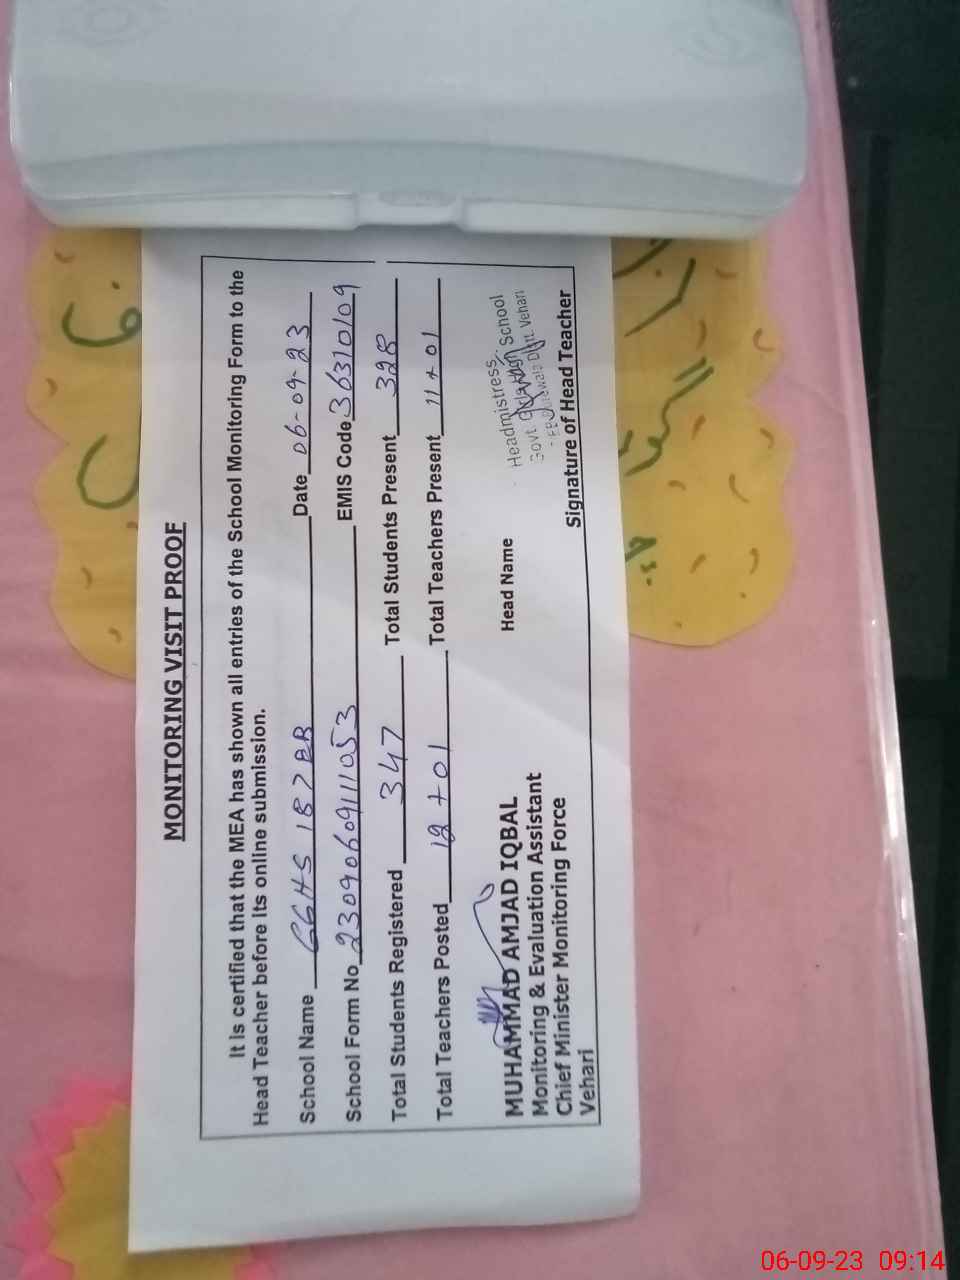 MONITORING VISIT PROOF
It is certified that the MEA has shown all entries of the School Monitoring Form to the
Head Teacher before its online submission.
School Name GGHS 187 EB Date 06-09-23
School Form No 2309060911053 EMIS Code 36310109
Total Students Registered 347 Total Students Present 328
Total Teachers Posted 12+01 Total Teachers Present 11+01
MUHAMMAD AMJAD IQBAL
Monitoring & Evaluation Assistant
Chief Minister Monitoring Force
Vehari
Head Name
Headmistress
Govt. Girls High School
Distt. Vehari
Signature of Head Teacher
06-09-23 09:14